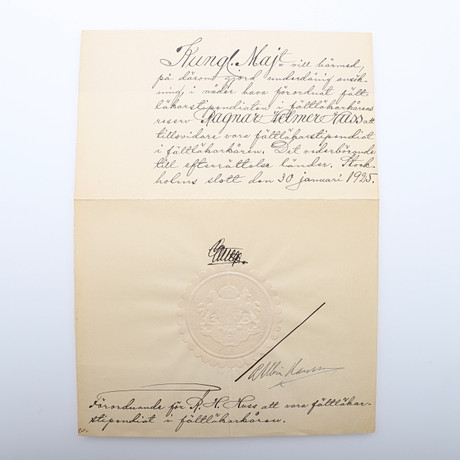 Kungl. Maj:t vill härmed,
på därom gjord underdånig ansök-
ning, i nåder hava förordnat fält-
läkarstipendiaten i fältläkarkårens
reserv Ragnar Helmer Huss att
tillsvidare vara fältläkarstipendiat
i fältläkarkåren. Det vederbörande
till efterrättelse länder. Stock-
holms slott den 30 januari 1925.
Förordnande för R. H. Huss att vara fältläkar-
stipendiat i fältläkarkåren.